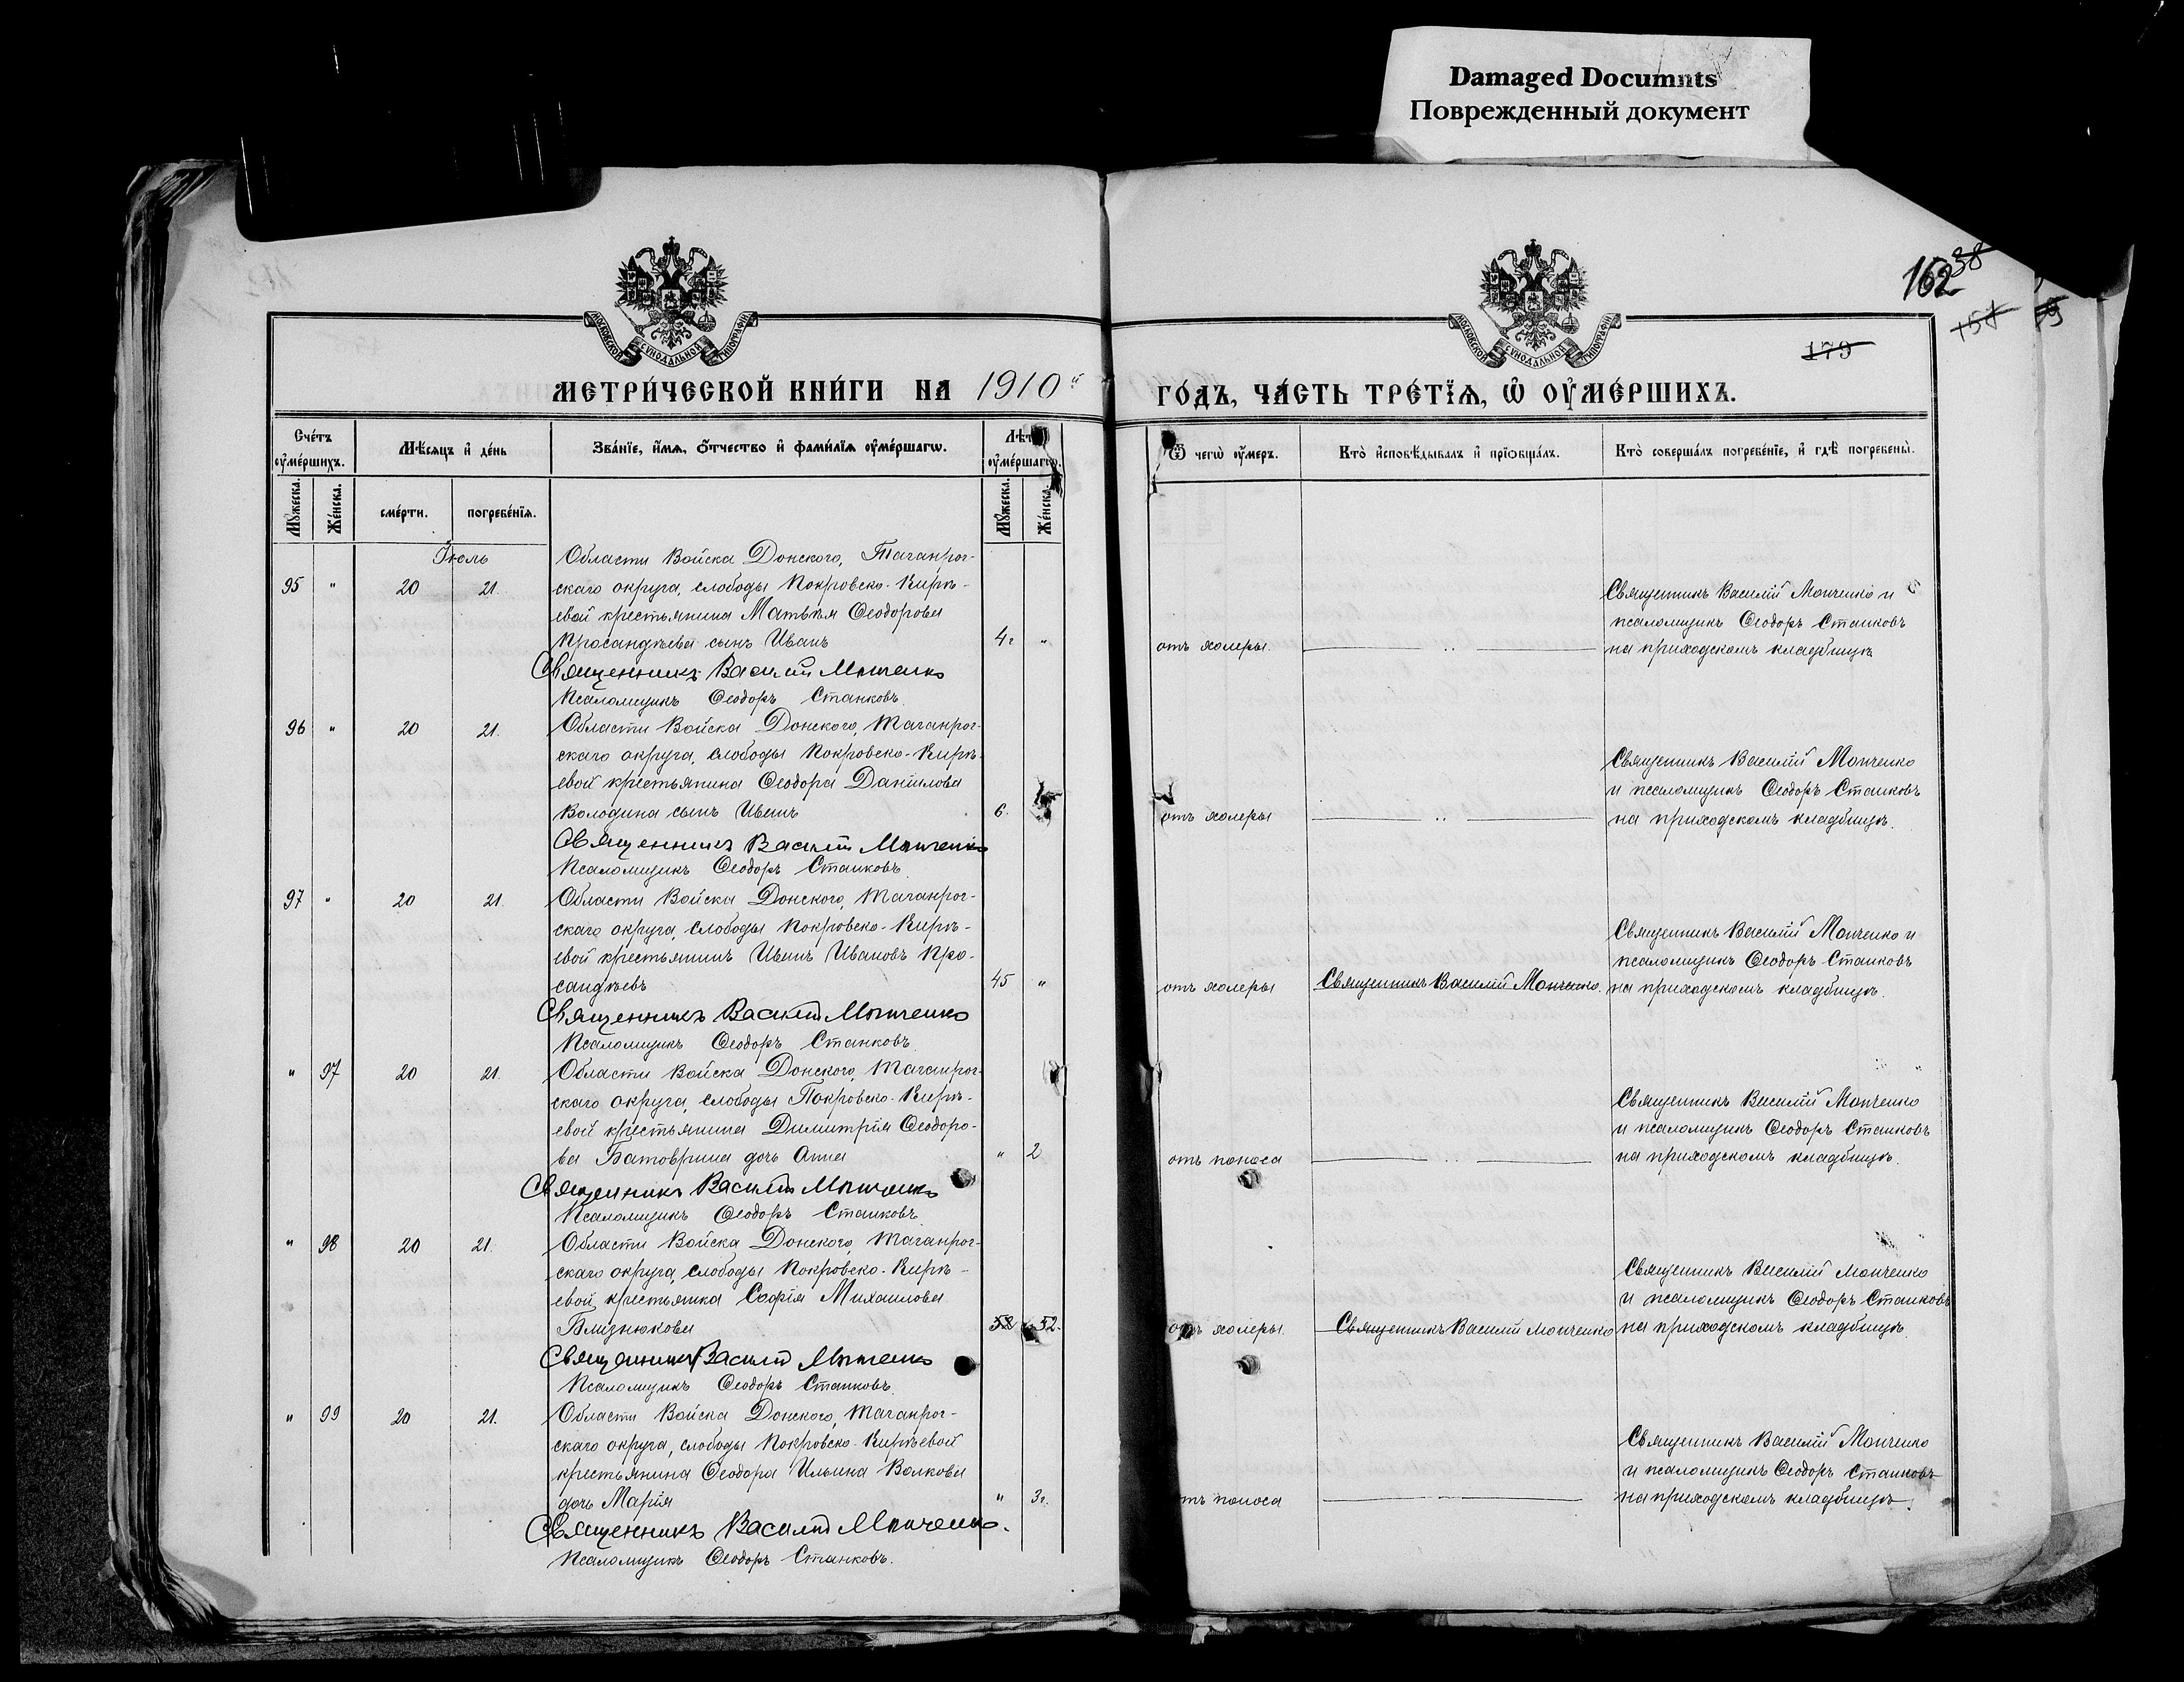 Damaged Documnts
Поврежденный документ
162
38
179
МОСКОВСКОЙ СѴНОДАЛЬНОЙ ТИПОГРАФІИ
МОСКОВСКОЙ СѴНОДАЛЬНОЙ ТИПОГРАФІИ
МЕТРИ́ЧЕСКОЙ КНИ́ГИ НА 1910й ГО́ДЪ, ЧА́СТЬ ТРЕ́ТЇѦ, Ѡ҆ ОУ҆МЕ́РШИХЪ.
Сче́тъ оу҆ме́ршихъ.
Мѣ́сѧцъ и҆ де́нь
Зва́нїе, и҆́мѧ, ѻ҆́тчество и҆ фами́лїѧ оу҆ме́ршагѡ.
Лѣ́та оу҆ме́ршагѡ.
Ѿ чегѡ̀ оу҆́меръ.
Кто̀ и҆сповѣ́дывалъ и҆ прїѡбща́лъ.
Кто̀ соверша́лъ погребе́нїе, и҆ гдѣ̀ погребены̀.
Мꙋ́жеска.
Же́нска.
сме́рти.
погребе́нїѧ.
Мꙋ́жеска.
Же́нска.
Іюль
Области Войска Донского, Таганрог-
95 " 20 21. скаго округа, слободы Покровско-Кирѣ-
евой крестьянина Матвѣя Ѳеодорова
Просандѣева сынъ Иванъ 4г "
Священникъ Василій Монченко
Псаломщикъ Ѳеодоръ Станковъ.
отъ холеры.
Священникъ Василій Монченко и
псаломщикъ Ѳеодоръ Станковъ
на приходскомъ кладбищѣ
96 " 20 21. Области Войска Донского, Таганрог-
скаго округа, слободы Покровско-Кирѣ-
евой крестьянина Ѳеодора Данилова
Володина сынъ Иванъ 6.
Священникъ Василій Монченко
Псаломщикъ Ѳеодоръ Станковъ.
отъ холеры
Священникъ Василій Монченко
и псаломщикъ Ѳеодоръ Станковъ
на приходскомъ кладбищѣ.
97 " 20 21. Области Войска Донского, Таганрог-
скаго округа, слободы Покровско-Кирѣ-
евой крестьянинъ Иванъ Ивановъ Про-
сандѣевъ 45 "
Священникъ Василій Монченко
Псаломщикъ Ѳеодоръ Станковъ.
отъ холеры
Священникъ Василій Монченко.
Священникъ Василій Монченко и
псаломщикъ Ѳеодоръ Станковъ
на приходскомъ кладбищѣ.
" 97 20 21. Области Войска Донского, Таганрог-
скаго округа, слободы Покровско-Кирѣ-
евой крестьянина Димитрія Ѳеодоро-
ва Батоврина дочь Анна " 2
Священникъ Василій Монченко
Псаломщикъ Ѳеодоръ Станковъ.
отъ поноса
Священникъ Василій Монченко
и псаломщикъ Ѳеодоръ Станковъ
на приходскомъ кладбищѣ.
" 98 20 21. Области Войска Донского, Таганрог-
скаго округа, слободы Покровско-Кирѣ-
евой крестьянка Софія Михаилова
Близнюкова 52 52.
Священникъ Василій Монченко
Псаломщикъ Ѳеодоръ Станковъ.
отъ холеры.
Священникъ Василій Монченко
Священникъ Василій Монченко
и псаломщикъ Ѳеодоръ Станковъ
на приходскомъ кладбищѣ.
" 99 20 21. Области Войска Донского, Таганрог-
скаго округа, слободы Покровско-Кирѣевой
крестьянина Ѳеодора Ильина Волкова
дочь Марія " 3г.
Священникъ Василій Монченко.
Псаломщикъ Ѳеодоръ Станковъ.
отъ поноса
Священникъ Василій Монченко
и псаломщикъ Ѳеодоръ Станковъ
на приходскомъ кладбищѣ.